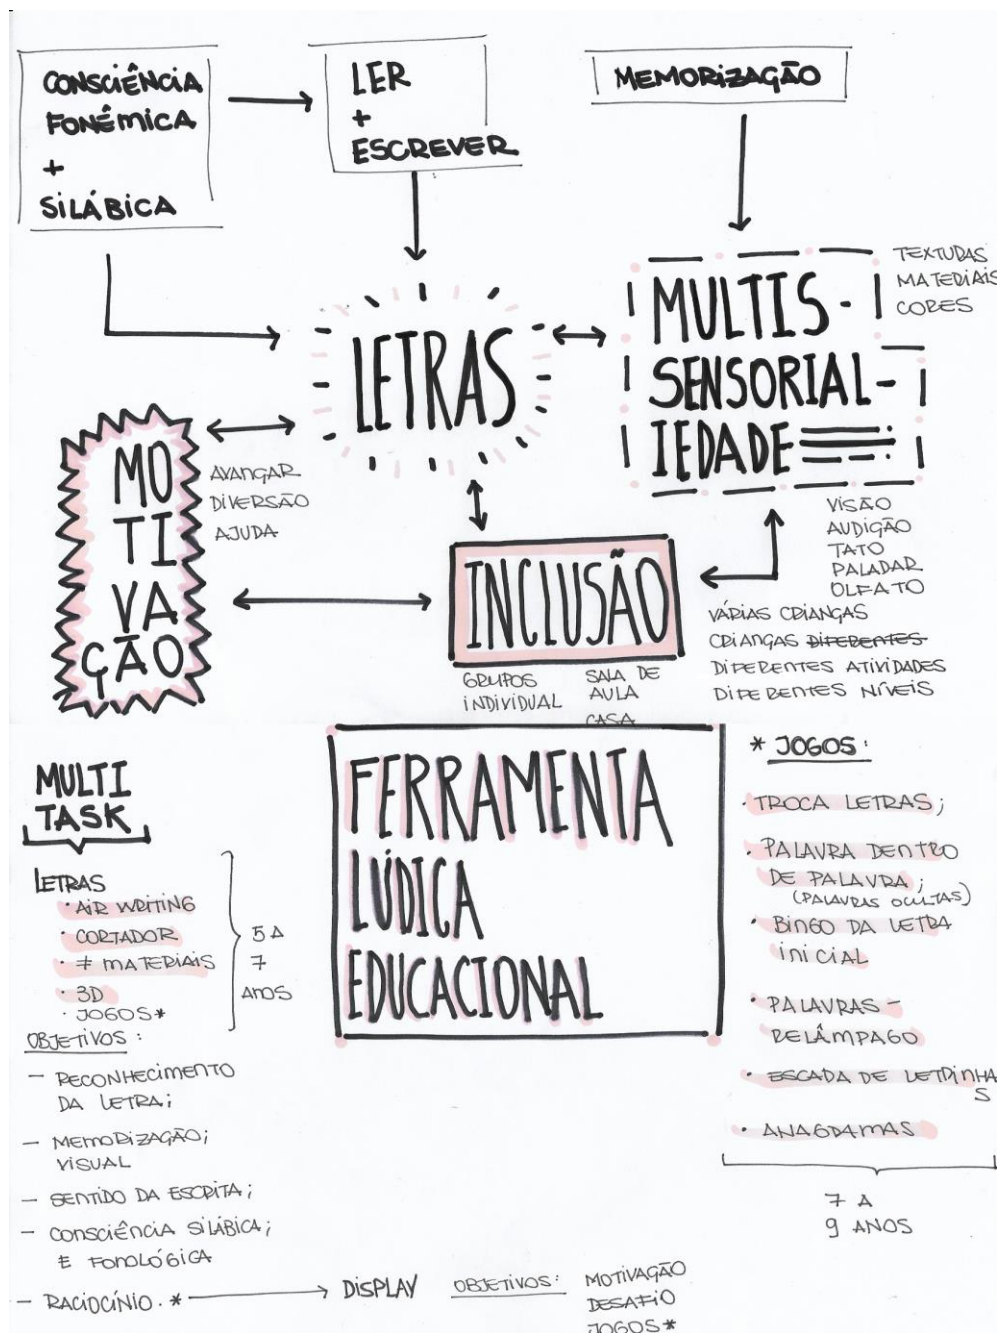 CONSCIÊNCIA
FONÊMICA
+
SILÁBICA
LER
+
ESCREVER
MEMORIZAÇÃO
TEXTURAS
MATERIAIS
CORES
LETRAS
MULTIS-
SENSORIAL-
IEDADE
MO
TI
VA
ÇÃO
AVANÇAR
DIVERSÃO
AJUDA
VISÃO
AUDIÇÃO
TATO
PALADAR
OLFATO
INCLUSÃO
GRUPOS
INDIVIDUAL
SALA DE
AULA
CASA
VÁRIAS CRIANÇAS
CRIANÇAS DIFERENTES
DIFERENTES ATIVIDADES
DIFERENTES NÍVEIS
MULTI
TASK
LETRAS
· AIR WRITING
· CORTADOR
· ≠ MATERIAIS
· 3D
· JOGOS*
5 A
7
ANOS
OBJETIVOS:
- RECONHECIMENTO
DA LETRA;
- MEMORIZAÇÃO;
VISUAL
- SENTIDO DA ESCRITA;
- CONSCIÊNCIA SILÁBICA;
E FONOLÓGICA
- RACIOCÍNIO. *
DISPLAY
OBJETIVOS:
MOTIVAÇÃO
DESAFIO
JOGOS*
FERRAMENTA
LÚDICA
EDUCACIONAL
* JOGOS:
· TROCA LETRAS;
· PALAVRA DENTRO
DE PALAVRA;
(PALAVRAS OCULTAS)
· BINGO DA LETRA
INICIAL
· PALAVRAS-
RELÂMPAGO
· ESCADA DE LETRINHA
S
· ANAGRAMAS
7 A
9 ANOS